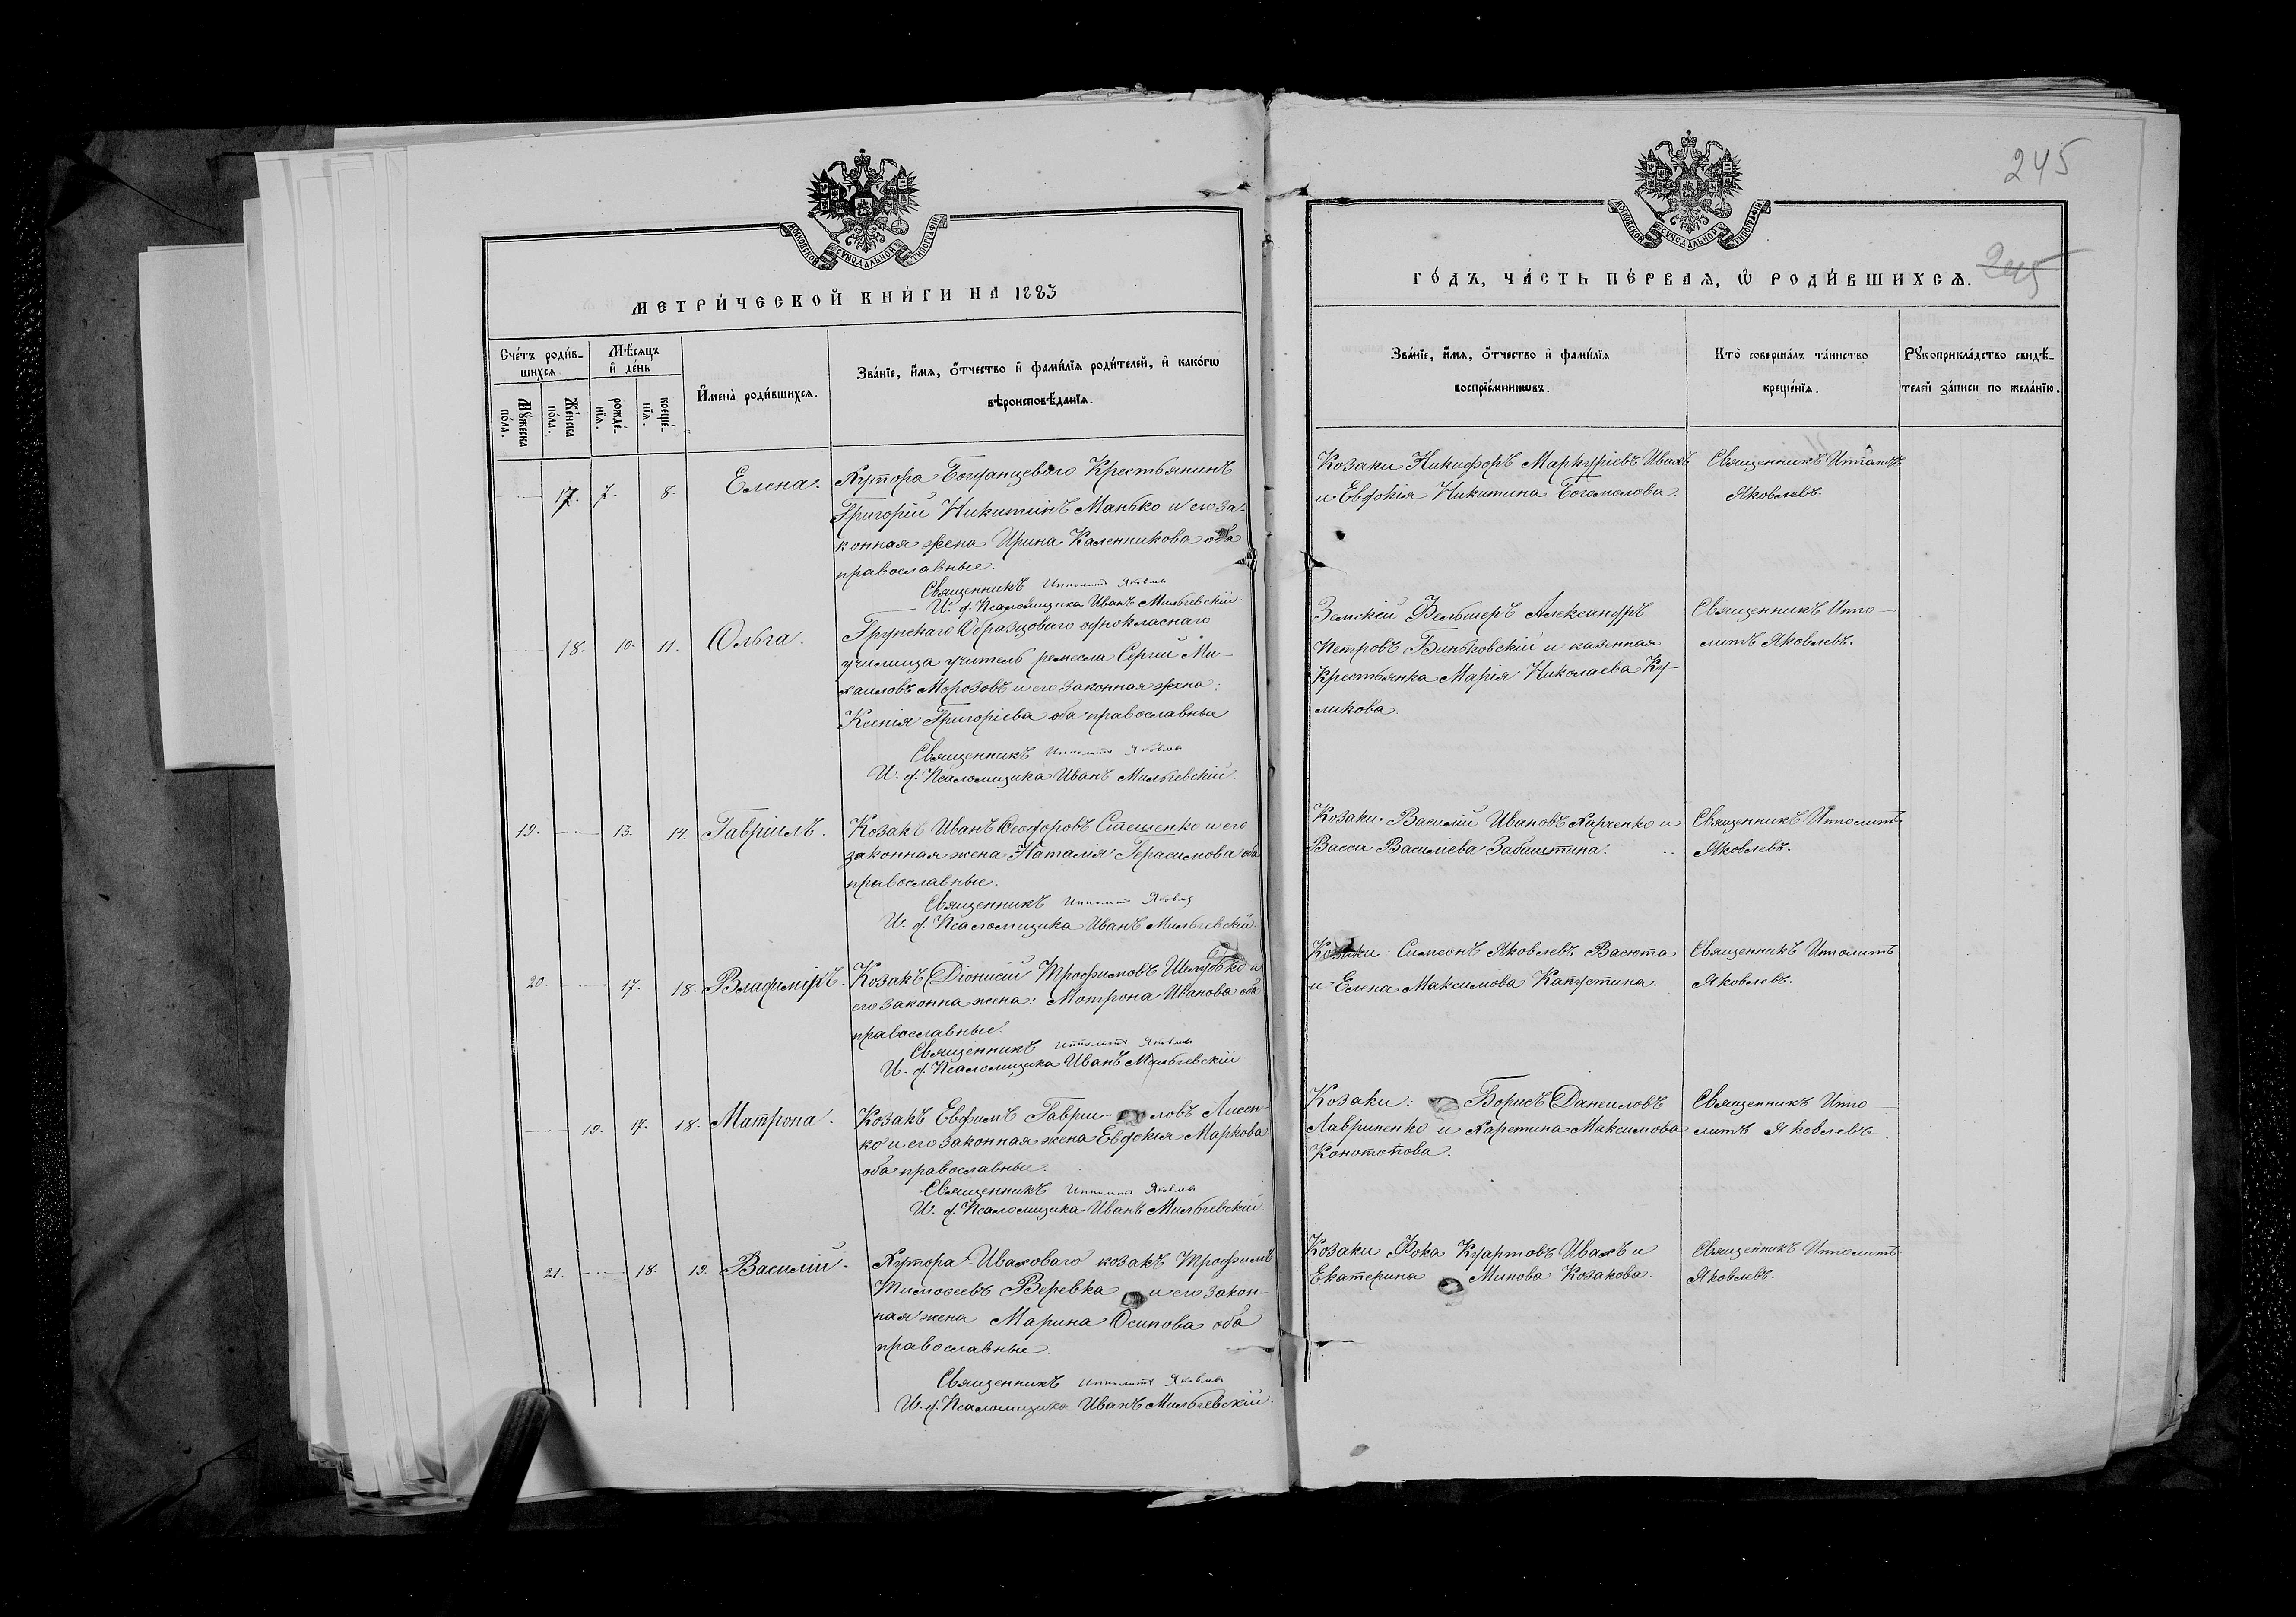 245
МОСКОВСКОЙ СѴНОДАЛЬНОЙ ТИПОГРАФІИ
МОСКОВСКОЙ СѴНОДАЛЬНОЙ ТИПОГРАФІИ
МЕТРИ́ЧЕСКОЙ КНИ́ГИ НА 1883
ГО́ДЪ, ЧА́СТЬ ПЕ́РВАЯ, Ѿ РОДИ́ВШИХСѦ.
245
Сче́тъ роди́в-
шихсѧ
Мꙋ́жеска по́ла.
Же́нска по́ла.
Мѣ́сѧцъ
и҆ де́нь
рожде́-
нїѧ.
креще́-
нїѧ.
И҆мена̀ роди́вшихсѧ.
Зва́нїе, и҆́мѧ, ѻ҆́тчество и҆ фами́лїѧ роди́телей, и҆ како́гѡ
вѣроисповѣ́данїѧ.
Зва́нїе, и҆́мѧ, ѻ҆́тчество и҆ фами́лїѧ
воспрїе́мниковъ.
Кто̀ соверша́лъ та́инство
креще́нїѧ.
Рꙋкоприкла́дство свидѣ́-
телей за́писи по жела́нїю.
17. 7. 8. Елена.
Хутора Богданцеваго Крестьянинъ
Григорій Никитинъ Манько и его за-
конная жена Ирина Каленникова оба
православные.
Священникъ Ипполитъ Яковлевъ
И. д. Псаломщика Иванъ Мильгевскій
Козаки Никифоръ Маркуріевъ Ивахъ
и Евдокія Никитина Богомолова.
Священникъ Иполитъ
Яковлевъ.
18. 10. 11. Ольга.
Грунскаго Образцоваго однокласнаго
училища учитель ремесла Сергій Ми-
хаиловъ Морозовъ и его законная жена:
Ксенія Григоріева оба православные
Священникъ Ипполитъ Яковлевъ
И. д. Псаломщика Иванъ Мильгевскій.
Земскій Фельшеръ Александръ
Петровъ Биньковскій и казенная
Крестьянка Марія Николаева Ку-
ликова.
Священникъ Ипо-
литъ Яковлевъ.
19. 13. 14. Гавріилъ.
Козакъ Иванъ Ѳеодоровъ Стешенко и его
законная жена Наталія Герасимова оба
православные.
Священникъ Ипполитъ Яковлевъ
И. д. Псаломщика Иванъ Мильгевскій
Козаки Василій Ивановъ Харченко и
Васса Василиева Забиштина.
Священникъ Иполитъ
Яковлевъ.
20. 17. 18. Владиміръ.
Козакъ Діонисій Трофимовъ Шелудько и
его законна жена: Мотрона Иванова оба
православные.
Священникъ Ипполитъ Яковлевъ
И. д. Псаломщика Иванъ Мильгевскій
Козаки: Симеонъ Яковлевъ Васюта
и Елена Максимова Капустина.
Священникъ Иполитъ
Яковлевъ.
19. 17. 18. Матрона.
Козакъ Евфимъ Гаври-ловъ Лисен-
ко и его законная жена Евдокия Маркова
оба православные.
Священникъ Ипполитъ Яковлевъ
И. д. Псаломщика Иванъ Мильгевскій
Козаки: Борисъ Даниловъ
Лавриненко и Харетина Максимова
Конотопова.
Священникъ Ипо-
литъ Яковлевъ
21. 18. 19. Василій.
Хутора Иваховаго козакъ Трофимъ
Тимоѳеевъ Веревка и его закон-
ная жена Марина Осипова оба
православные.
Священникъ Ипполитъ Яковлевъ
И. д. Псаломщика Иванъ Мильгевскій.
Козаки Фока Ивахъ и
Екатерина Минова Козакова.
Священникъ Иполитъ
Яковлевъ.